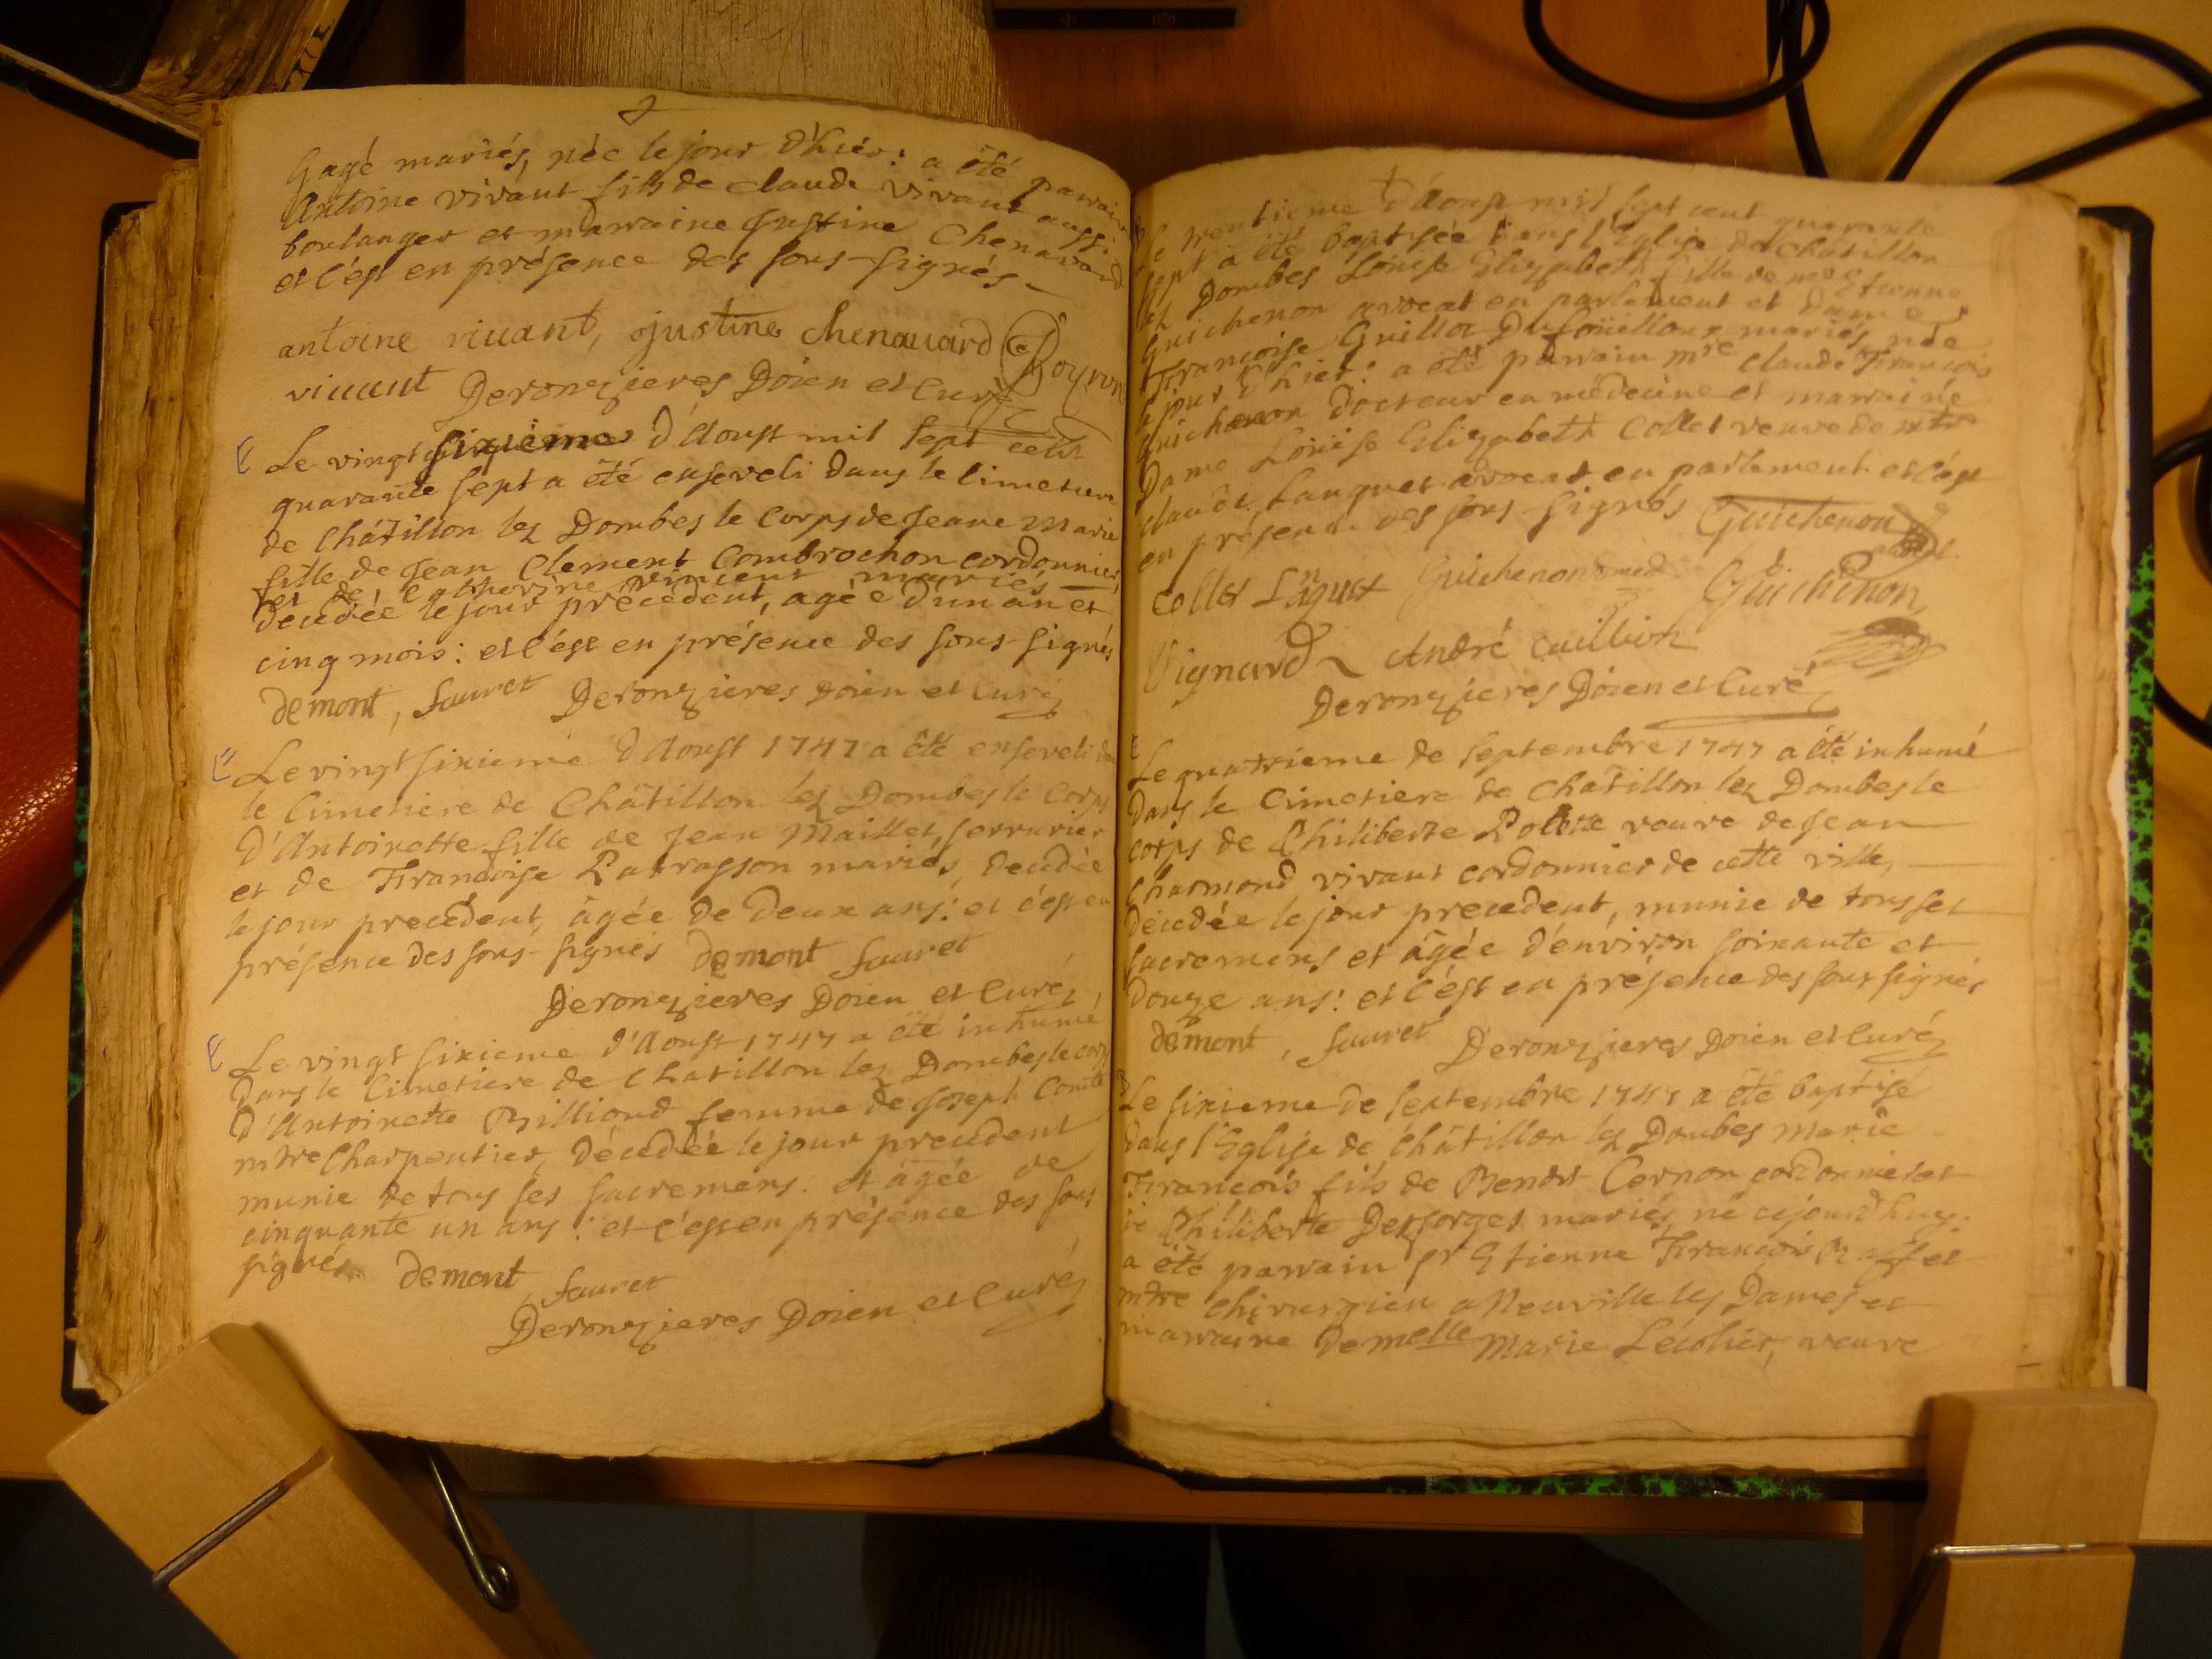 Gagé mariés, née le jour d'hier: a été parrain
Antoine vivant fils de claude vivant aussi
boulanger et marraine Justine Chenavard
et c'est en présence des sous-signés
antoine vivant, justine chenavard Boyron
vivant Deronzieres Doien et Curé
Le vingt sixieme d'Aoust mil sept cent
quarante sept a été enseveli dans le Cimetiere
de Châtillon lez Dombes le Corps de Jeane Marie
fille de Jean Clement Combrochon cordonnier
et de Catherine vincent mariés
decedée le jour précédent, agée d'un an et
cinq mois: et c'est en présence des sous-signés
demont, Sauret Deronzieres Doien et Curé
Le vingt sixieme d'Aoust 1747 a été enseveli dans
le Cimetiere de Châtillon lez Dombes le Corps
d'Antoinette fille de Jean Maillet, serrurier
et de Francoise Patrasson mariés, decedée
le jour precedent, âgée de deux ans: et c'est en
présence des sous-signés demont Sauret
Deronzieres Doien et Curé
Le vingt sixieme d'Aoust 1747 a été inhumé
dans le Cimetiere de Chatillon lez Dombes le corps
d'Antoinette Billioud femme de Joseph Comte
mtre Charpentier, décedée le jour precedent
munie de tous ses sacremens: et âgée de
cinquante un ans: et c'est en présence des sous
signés demont, Sauret
Deronzieres Doien et Curé
Le trentieme d'Aoust mil sept cent quarante
sept a été baptisée dans l'Eglise de Châtillon
lez Dombes Loüise Elizabeth fille de me Etienne
Guichenon avocat en parlement et Dame
Francoise Guillot Dufoüilloux mariés, née
le jour d'hier: a été parrain mre Claude Francois
Guichenon docteur en médecine et marraine
Dame Loüise Elizabeth Collet veuve de mtre
claude Languet avocat en parlement et c'est
en présence des sous-signés Guichenon
collet Languet Guichenon med. Guichenon
Vignard André Caillion
Deronzieres Doien et Curé
Le quatrieme de septembre 1747 a été inhumé
dans le Cimetiere de Châtillon lez Dombes le
corps de Philiberte veuve de Jean
Charmond vivant cordonnier de cette ville,
décedée le jour precedent, munie de tous ses
sacremens et âgée d'environ soixante et
douze ans: et c'est en présence des sous signés
demont, Sauret Deronzieres Doien et Curé
Le sixieme de septembre 1747 a été baptisé
dans l'Eglise de Châtillon lez Dombes Marie
Francois fils de Benoit Cornon cordonnier et
de Philiberte Desforges mariés, né cejourd'huy:
a été parrain sr Etienne Francois
mtre chirurgien a Neuville les Dames et
marraine Demelle Marie Lécolier, veuve